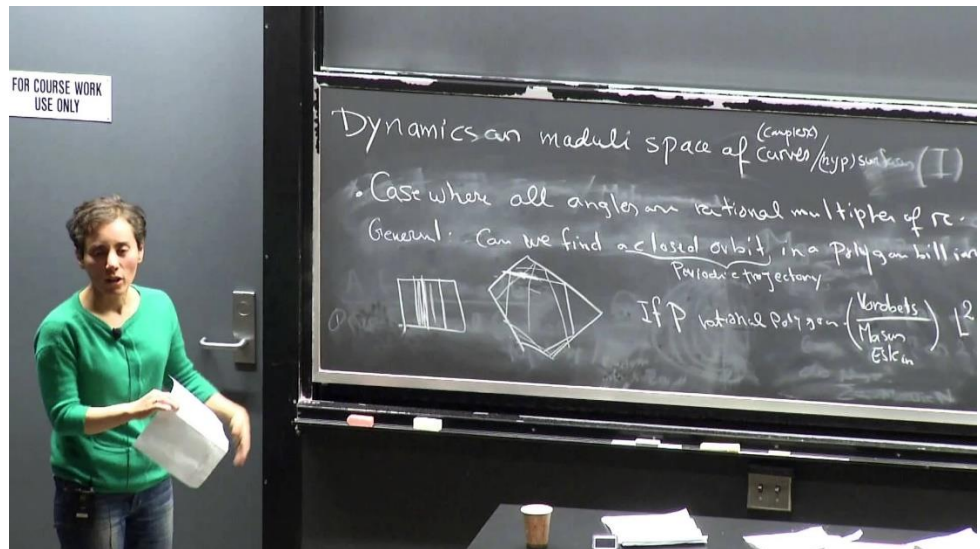 FOR COURSE WORK
USE ONLY
Dynamics on moduli space of (complex) curves/(hyp) surfaces (I)
• Case where all angles are rational multiples of π
General: Can we find a closed orbit in a polygon billiar
Periodic trajectory
If P rational polygon (Vorobets
Masur
Eskin) L²